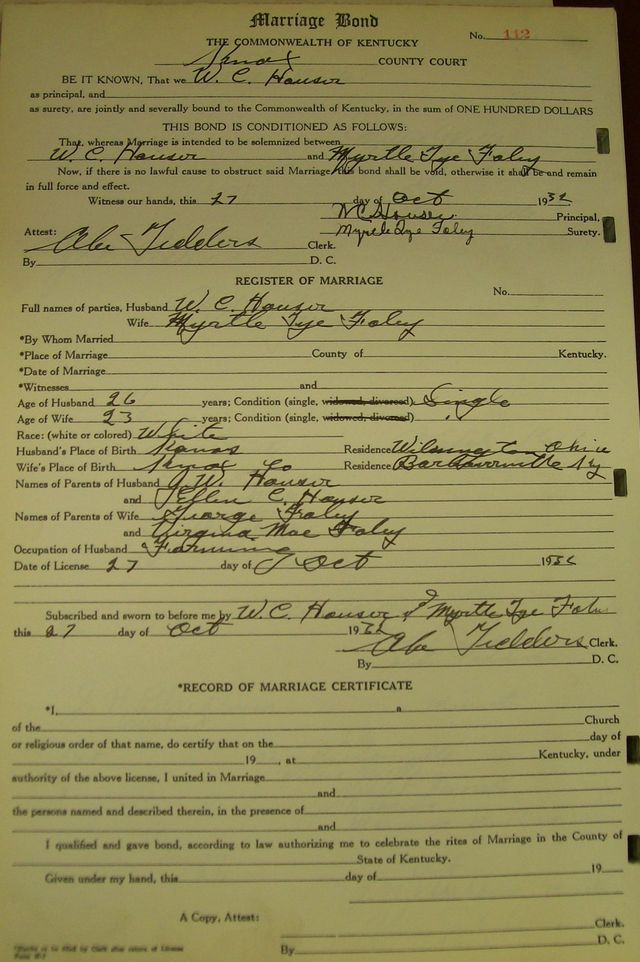 Marriage Bond
No. 112
THE COMMONWEALTH OF KENTUCKY
Knox COUNTY COURT
BE IT KNOWN, That we W. C. Houser
as principal, and
as surety, are jointly and severally bound to the Commonwealth of Kentucky, in the sum of ONE HUNDRED DOLLARS
THIS BOND IS CONDITIONED AS FOLLOWS:
That, whereas Marriage is intended to be solemnized between
W. C. Houser and Myrtle Tye Foley
Now, if there is no lawful cause to obstruct said Marriage this bond shall be void, otherwise it shall be and remain
in full force and effect.
Witness our hands, this 27 day of Oct 1932
W C Houser Principal,
Myrtle Tye Foley Surety.
Attest:
Abe Tedders Clerk.
By D. C.
REGISTER OF MARRIAGE
No.
Full names of parties, Husband W. C. Houser
Wife Myrtle Tye Foley
*By Whom Married
*Place of Marriage County of Kentucky.
*Date of Marriage
*Witnesses and
Age of Husband 26 years; Condition (single, widowed, divorced) Single
Age of Wife 23 years; Condition (single, widowed, divorced) "
Race: (white or colored) White
Husband's Place of Birth Residence Wilmington Ohio
Wife's Place of Birth Knox Co Residence Barbourville Ky
Names of Parents of Husband W. Houser
and C. Houser
Names of Parents of Wife George Foley
and Virginia Mae Foley
Occupation of Husband Farming
Date of License 27 day of Oct 1932
Subscribed and sworn to before me by W. C. Houser & Myrtle Tye Foley
this 27 day of Oct 1932
Abe Tedders Clerk.
By D. C.
*RECORD OF MARRIAGE CERTIFICATE
*I, a
of the Church
or religious order of that name, do certify that on the day of
19 , at Kentucky, under
authority of the above license, I united in Marriage
and
the persons named and described therein, in the presence of
and
I qualified and gave bond, according to law authorizing me to celebrate the rites of Marriage in the County of
State of Kentucky.
Given under my hand, this day of 19
A Copy, Attest:
Clerk.
By D. C.
*Blanks to be filled by Clerk after return of License